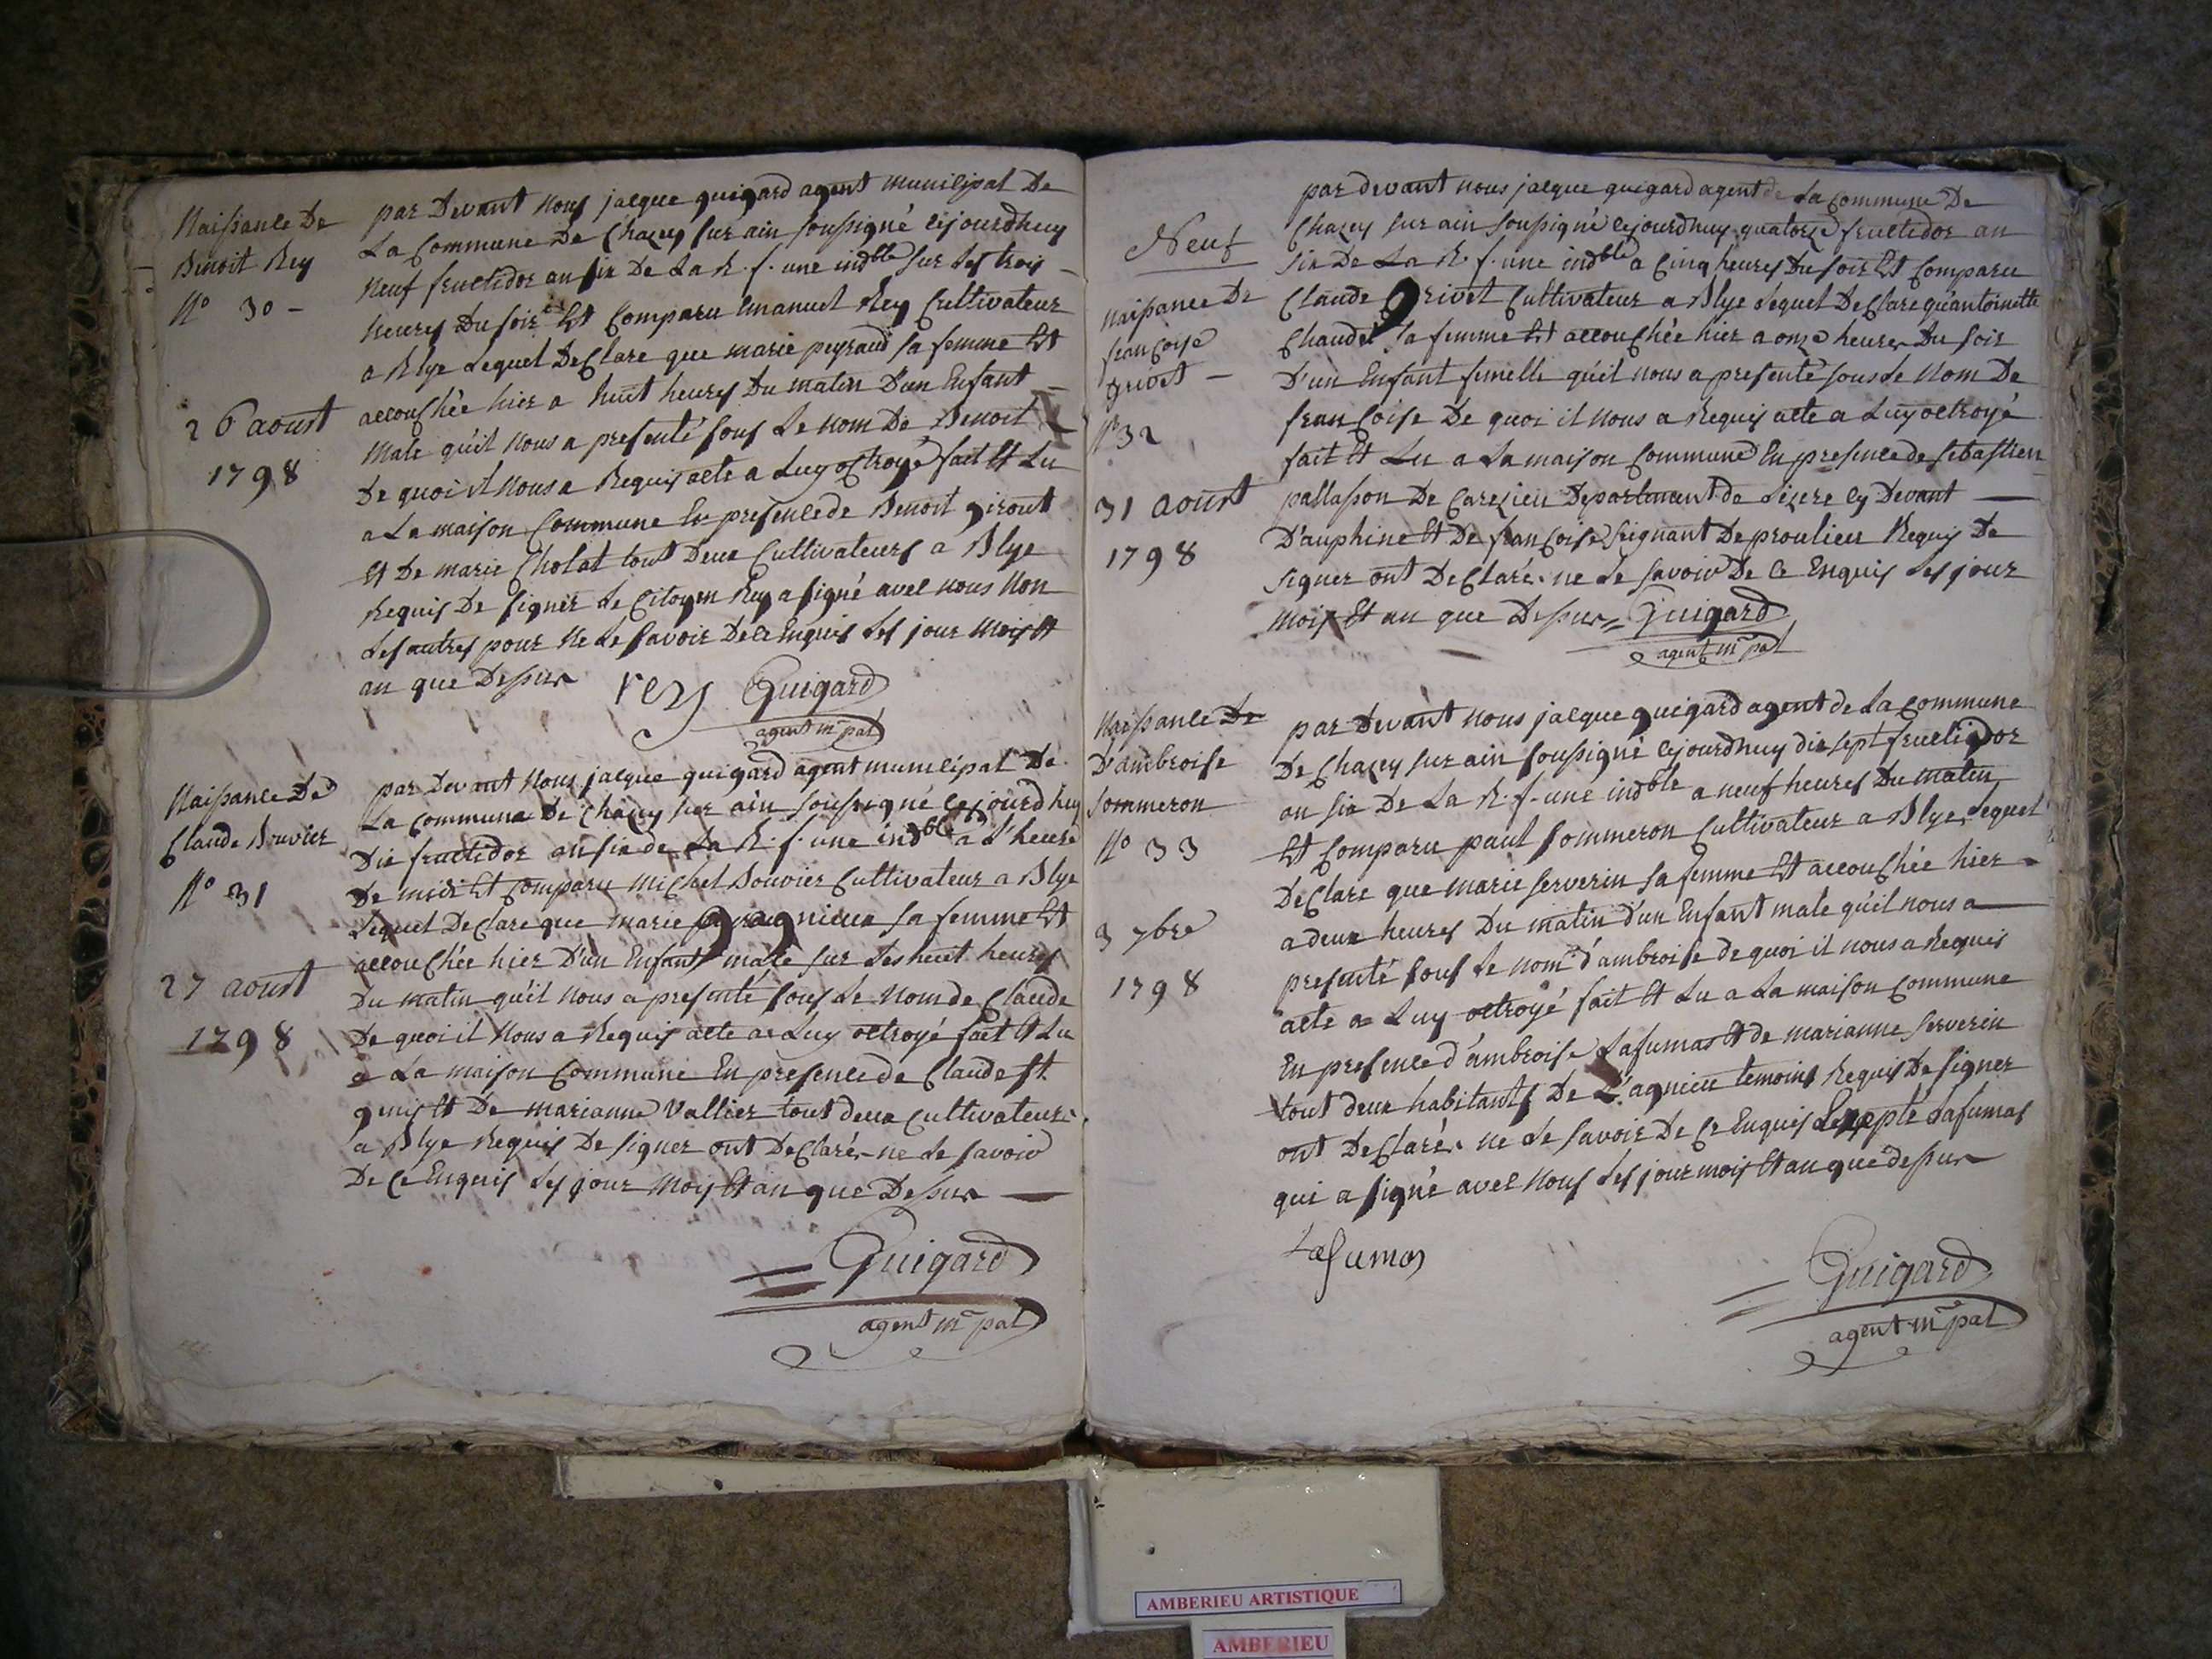 Naissance De
Benoit Rey
N° 30 -
26 aoust
1798
par Devant nous jacque guigard agent municipal De
La Commune De Chazey sur ain soussigné cejourdhuy
neuf fructidor an six De La R. f. une indble sur les trois
heures du soir Est Comparu Emanuel Rey Cultivateur
a Blye Lequel DeClare que marie peyraud sa femme Est
accouchée hier a huit heures Du matin D'un Enfant
Male qu'il nous a presenté sous Le nom De Benoit
De quoi il nous a Requis acte a Luy octroyé fait Et Lu
a La maison Commune En presence de Benoit giront
Et De marie Cholat tout Deux Cultivateurs a Blye
Requis De signer Le Citoyen Rey a signé avec nous Non
Les autres pour Ne Le savoir De Ce Enquis Les jour Mois Et
an que Dessus rey Guigard
agent mpal
Naissance De
Claude Bouvier
N° 31
27 aoust
1798
par Devant Nous jacque guigard agent municipal De
La Commune De Chazey sur ain soussigné cejourdhuy
Dix fructidor an six de La R. f. une indble a L'heure
De midi Est Comparu Michel Bouvier Cultivateur a Blye
Lequel DeClare que marie sa femme Est
accouchée hier D'un Enfant male sur Les huit heures
Du matin qu'il nous a presenté sous Le Nom de Claude
De quoi il Nous a Requis acte a Luy octroyé fait Et Lu
a La maison Commune En presence de Claude St
genis Et De marianne Vallier tout deux Cultivateurs
a Blye Requis De signer ont DeClarés ne Le savoir
De Ce Enquis Les jour Mois Et an que Dessus
Guigard
agent mpal
Neuf
Naissance De
francoise
grivet -
N° 32
31 aoust
1798
par devant nous jacque guigard agent de La Commune De
Chazey sur ain soussigné cejourdhuy quatorze fructidor an
six De La R. f. une indble a Cinq heures Du soir Est Comparu
Claude Grivet Cultivateur a Blye Lequel DeClare qu'antoinette
sa femme Est accouchée hier a onze heures Du soir
D'un Enfant femelle qu'il nous a presenté sous Le Nom De
francoise De quoi il nous a Requis acte a Luy octroyé
fait Et Lu a La maison Commune En presence de sebastien
pallasson De Carezieu Departement de Lizere Cy Devant
D'auphine Et De francoise De proulieu Requis De
signer ont DeClarés ne Le savoir De Ce Enquis Les jour
Mois Et an que Dessus = Guigard
agent mpal
Naissance De
D'ambroise
Sommeron
N° 33
3 7bre
1798
par Devant nous jacque guigard agent de La Commune
De Chazey sur ain soussigné cejourdhuy dix sept fructidor
an six De La R. f. une indble a neuf heures Du matin
Est Comparu paul Sommeron Cultivateur a Blye Lequel
DeClare que marie serverin sa femme Est accouchée hier
a deux heures Du matin D'un Enfant male qu'il nous a
presenté sous Le nom d'ambroise de quoi il nous a Requis
acte a Luy octroyé fait Et Lu a La maison Commune
En presence d'ambroise Lafumas Et de marianne serverin
tout deux habitants De L'agnieu temoins Requis De signer
ont DeClarés ne Le savoir De Ce Enquis Excepté Lafumas
qui a signé avec nous Les jour mois Et an que dessus
Lafumas
Guigard
agent mpal
AMBERIEU ARTISTIQUE
AMBERIEU